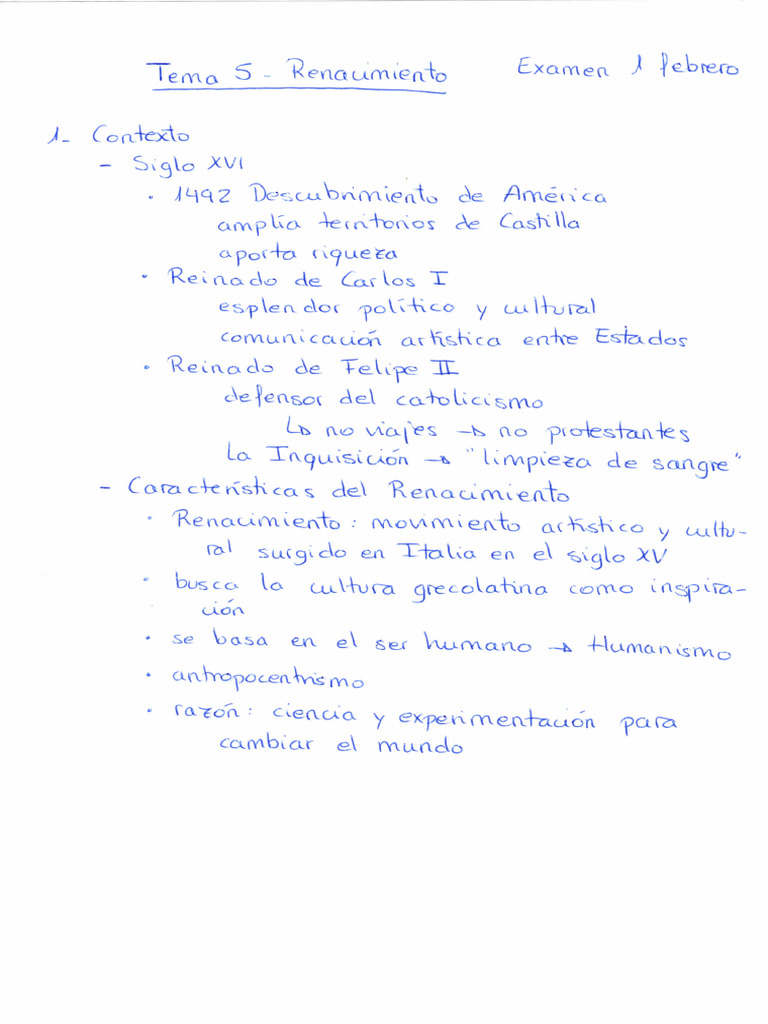 Tema 5 - Renacimiento Examen 1 febrero
1- Contexto
- Siglo XVI
· 1492 Descubrimiento de América
amplía territorios de Castilla
aporta riqueza
· Reinado de Carlos I
esplendor político y cultural
comunicación artística entre Estados
· Reinado de Felipe II
defensor del catolicismo
↳ no viajes → no protestantes
La Inquisición → "limpieza de sangre"
- Características del Renacimiento
· Renacimiento: movimiento artístico y cultu-
ral surgido en Italia en el siglo XV
· busca la cultura grecolatina como inspira-
ción
· se basa en el ser humano → Humanismo
· antropocentrismo
· razón: ciencia y experimentación para
cambiar el mundo